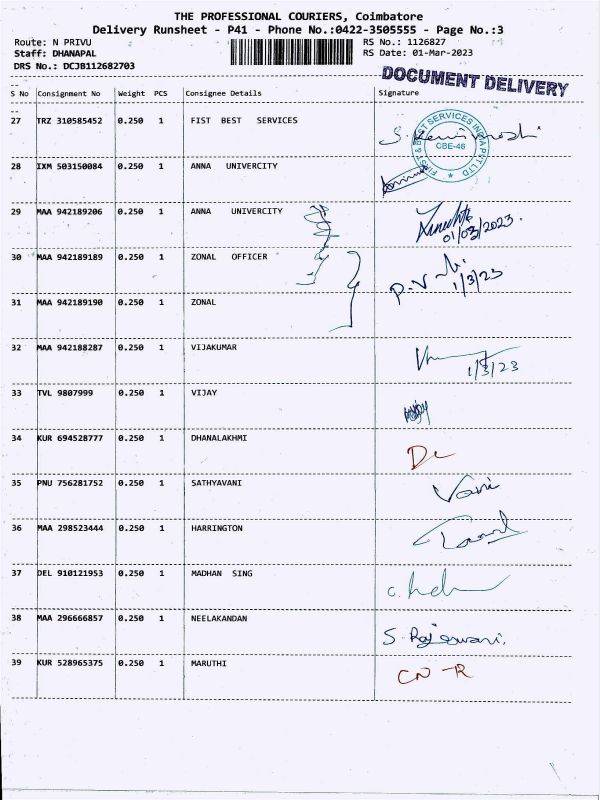 THE PROFESSIONAL COURIERS, Coimbatore
Delivery Runsheet - P41 - Phone No.:0422-3505555 - Page No.:3
Route: N PRIVU RS No.: 1126827
Staff: DHANAPAL RS Date: 01-Mar-2023
DRS No.: DCJB112682703
DOCUMENT DELIVERY
S No Consignment No Weight PCS Consignee Details Signature
27 TRZ 310585452 0.250 1 FIST BEST SERVICES
FIRST & BEST SERVICES INDIA PVT LTD
CBE-46
28 IXM 503150084 0.250 1 ANNA UNIVERCITY
29 MAA 942189206 0.250 1 ANNA UNIVERCITY
01/03/2023.
30 MAA 942189189 0.250 1 ZONAL OFFICER
1/3/23
31 MAA 942189190 0.250 1 ZONAL
32 MAA 942188287 0.250 1 VIJAKUMAR
1/3/23
33 TVL 9807999 0.250 1 VIJAY
34 KUR 694528777 0.250 1 DHANALAKHMI
35 PNU 756281752 0.250 1 SATHYAVANI Vani
36 MAA 298523444 0.250 1 HARRINGTON
37 DEL 910121953 0.250 1 MADHAN SING
38 MAA 296666857 0.250 1 NEELAKANDAN S. Rajeswari.
39 KUR 528965375 0.250 1 MARUTHI